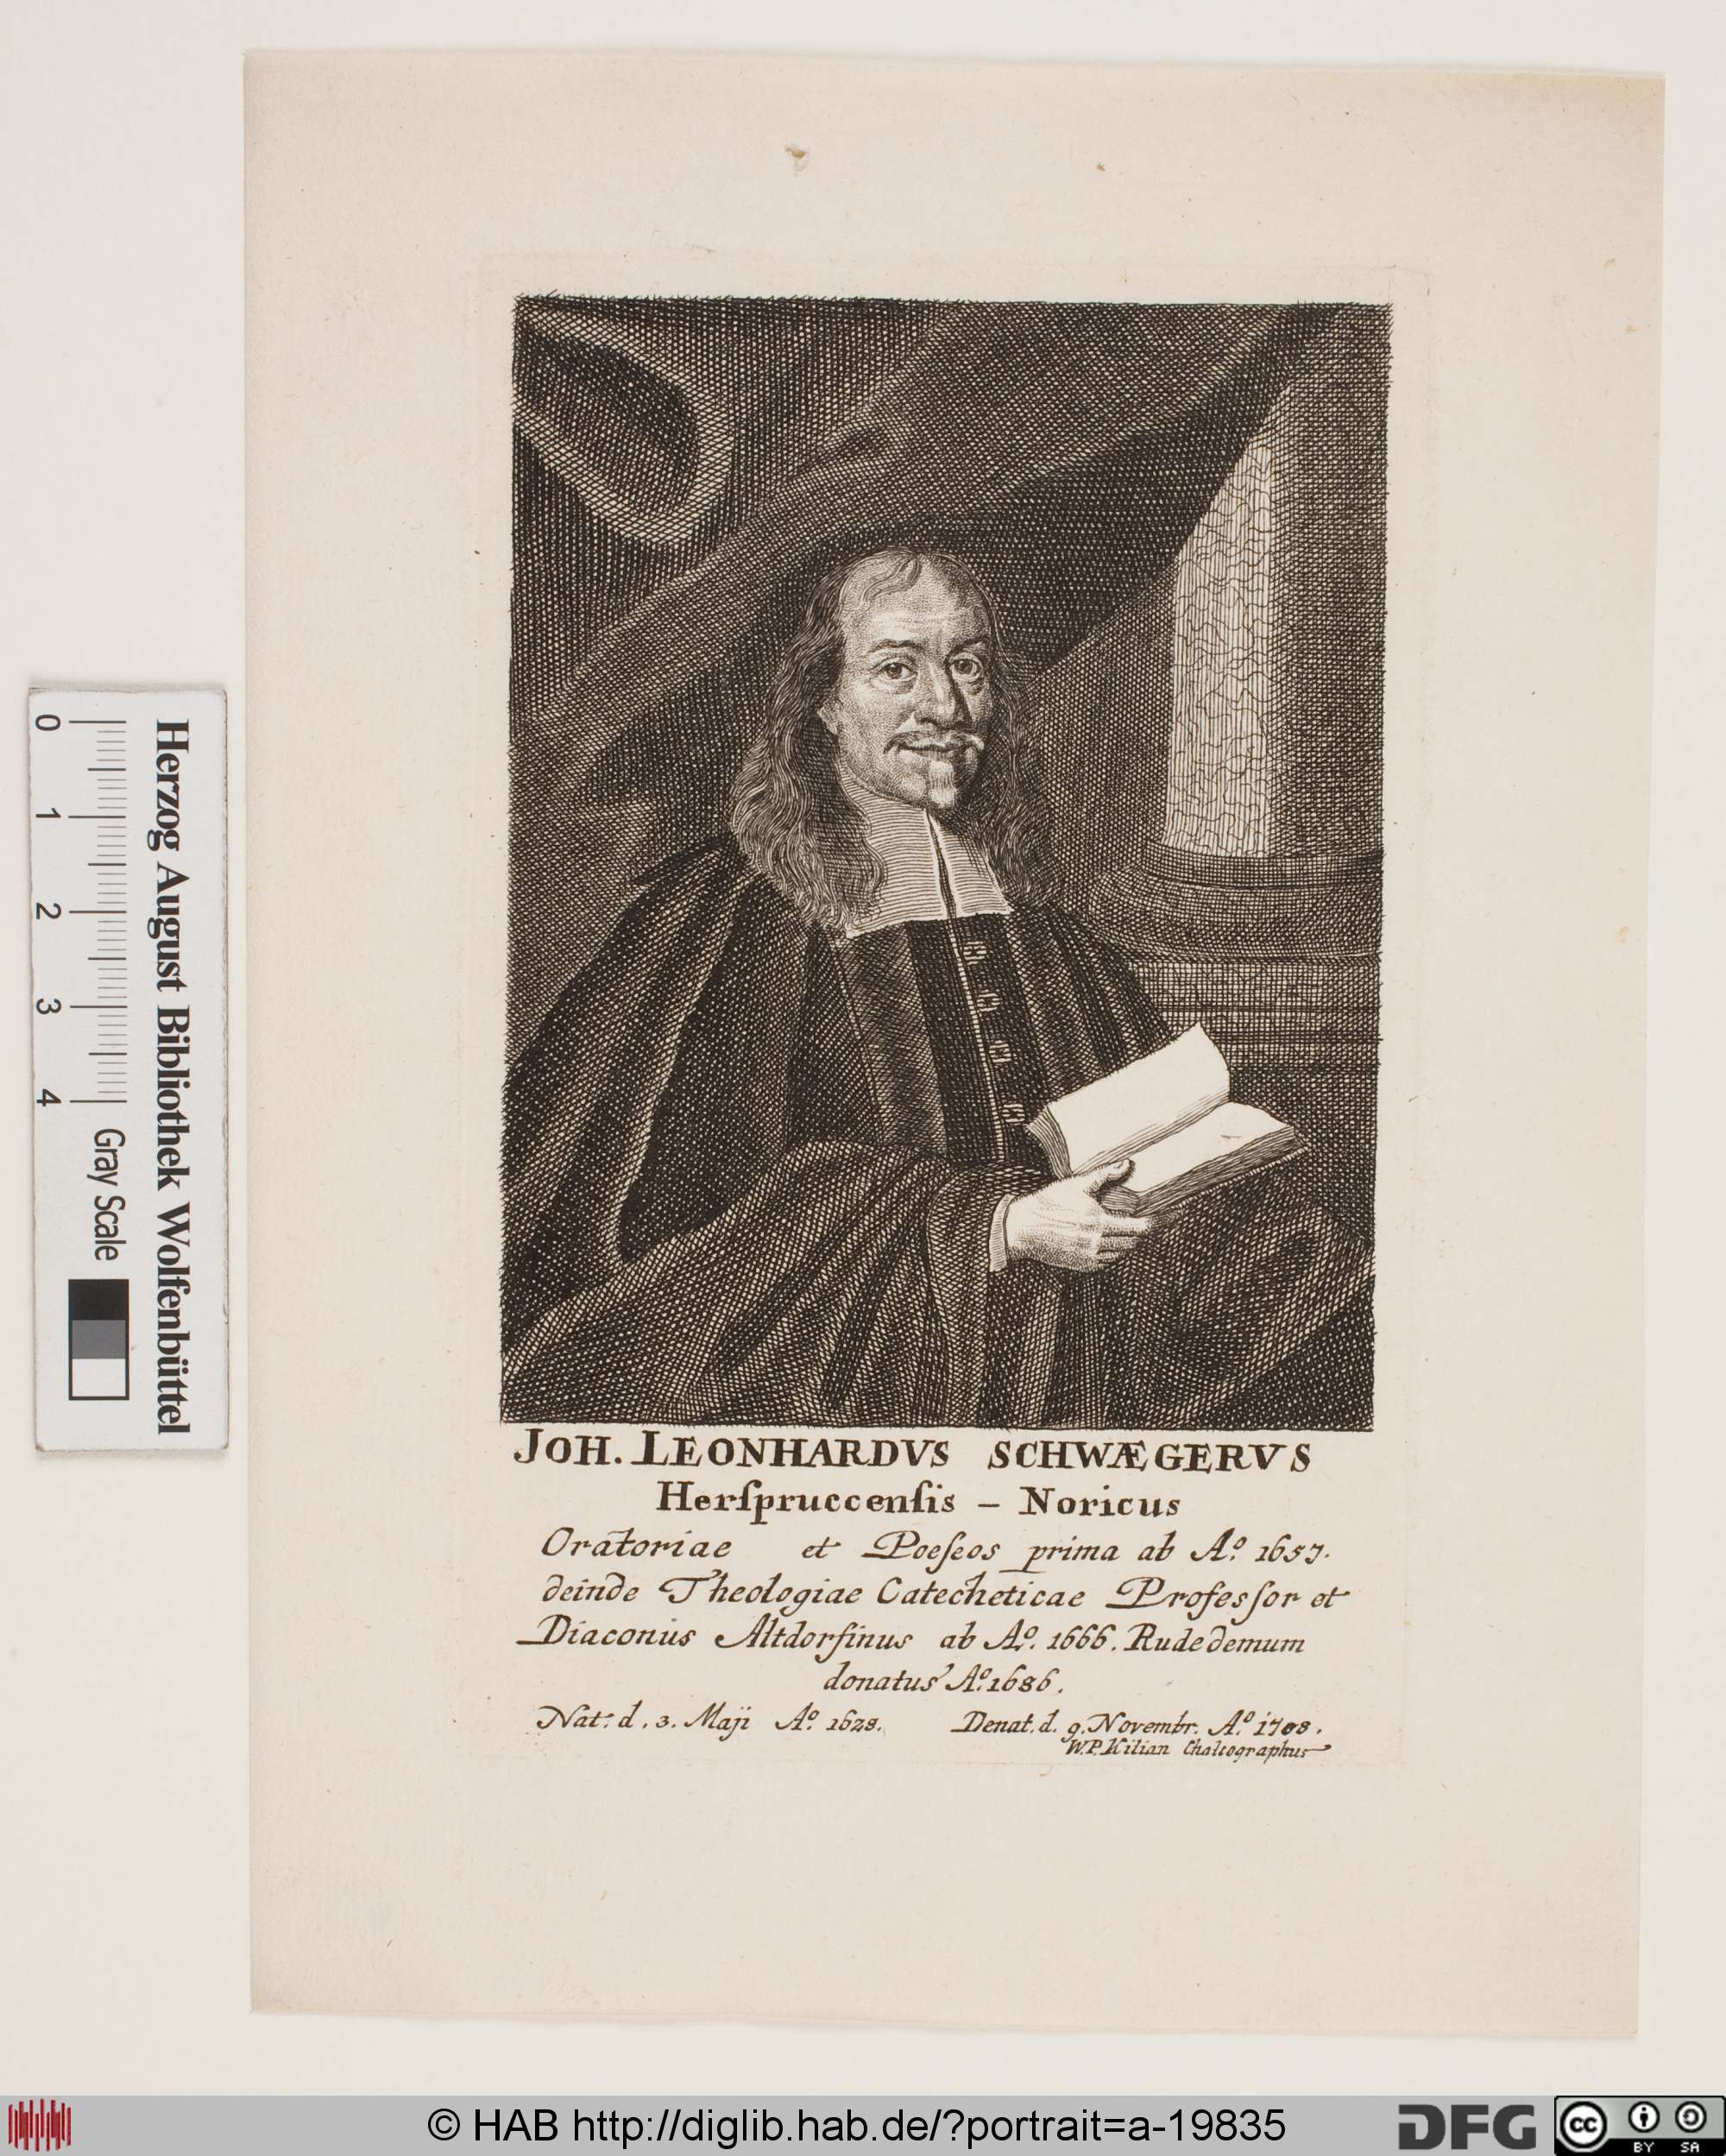 JOH. LEONHARDVS SCHWÆGERVS
Herſpruccenſis – Noricus
Oratoriae et Poeſeos prima ab Aº. 1657.
deinde Theologiae Catecheticae Profeſſor et
Diaconus Altdorfinus ab Aº. 1666. Rude demum
donatus Aº. 1686.
Nat. d. 3. Maji Aº. 1628. Denat. d. 9. Novembr. Aº. 1708.
W.P. Kilian Chalcographus
Herzog August Bibliothek Wolfenbüttel
0 1 2 3 4 Gray Scale
© HAB http://diglib.hab.de/?portrait=a-19835
DFG
cc BY SA